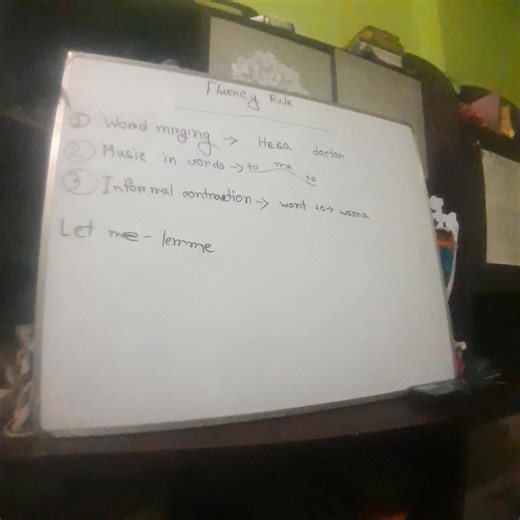 Fluency Rule
① Word mrging → Hesa docton
② Music in words → to ma to
③ Informal contraction → want to → wanna
Let me - lemme